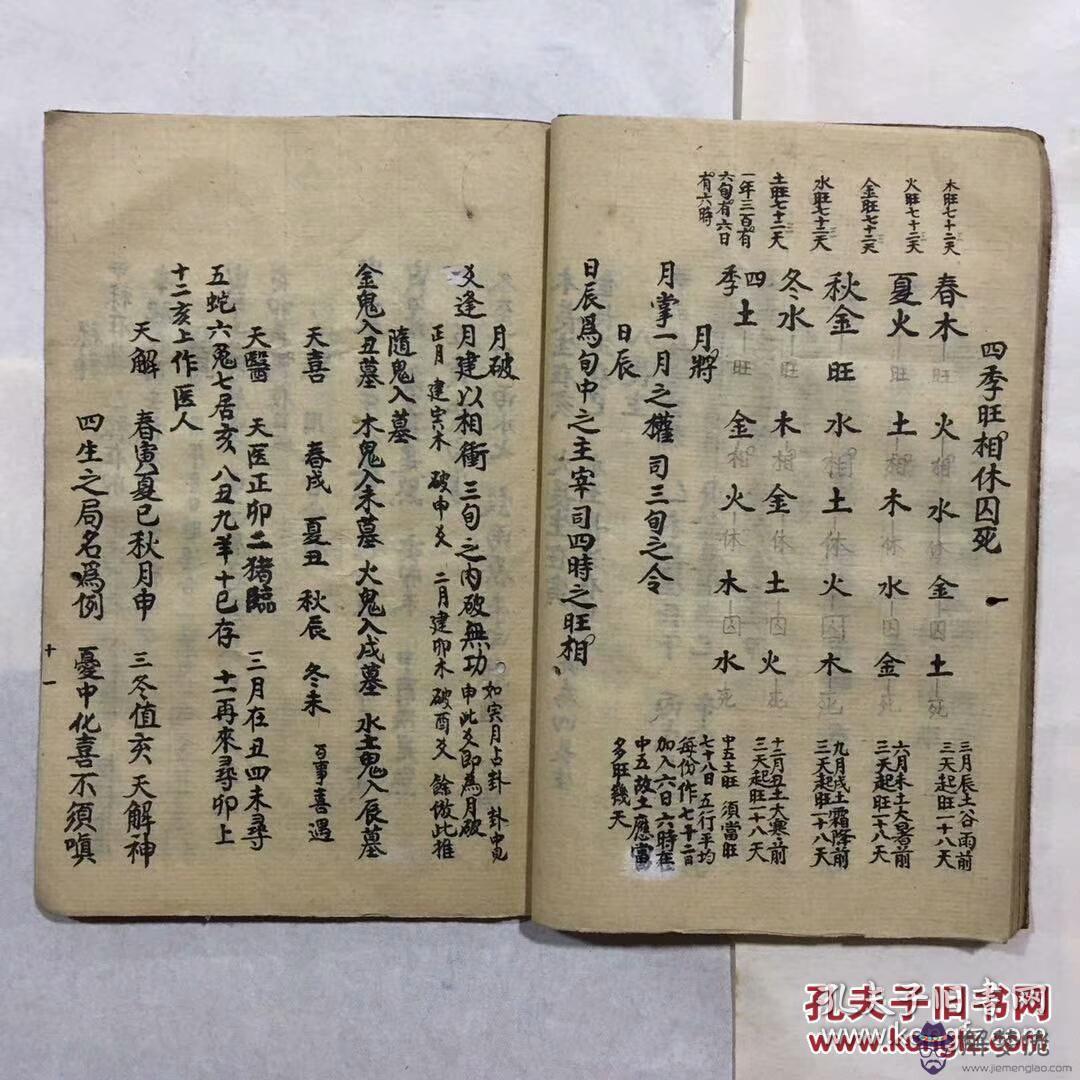 四季旺相休囚死
木旺七十二天
春木旺 火相 水休 金囚 土死
三月辰土谷雨前
三天起旺一十八天
火旺七十二天
夏火旺 土相 木休 水囚 金死
六月未土大暑前
三天起旺一十八天
金旺七十二天
秋金旺 水相 土休 火囚 木死
九月戌土霜降前
三天起旺一十八天
水旺七十二天
冬水旺 木相 金休 土囚 火死
十二月丑土大寒前
三天起旺一十八天
土旺七十二天
四季土旺 金相 火休 木囚 水死
一年三百有
六旬有六日
有六時
中五土旺 須當旺
七十八日 五行平均
每份作七十二日
加入六日六時在
中五故土應當
多旺幾天
月將
月掌一月之權 司三旬之令
日辰
日辰爲旬中之主宰司四時之旺相
月破
爻逢月建以相衝 三旬之內破無功
如寅月占卦 卦中見
申此爻即為月破
正月 建寅木 破申爻 二月建卯木 破酉爻 餘倣此推
隨鬼入墓
金鬼入丑墓 木鬼入未墓 火鬼入戌墓 水土鬼入辰墓
天喜 春戌 夏丑 秋辰 冬未 百事喜遇
天醫 天医正卯二猪臨 三月在丑四未尋
五蛇六兔七居亥 八丑九羊十巳存 十一再來尋卯上
十二亥上作医人
天解 春寅夏巳秋月申 三冬值亥天解神
四生之局名爲例 憂中化喜不須嗔
十一
孔夫子旧书网
www.kongfz.com
解梦流
www.jiemengliao.com